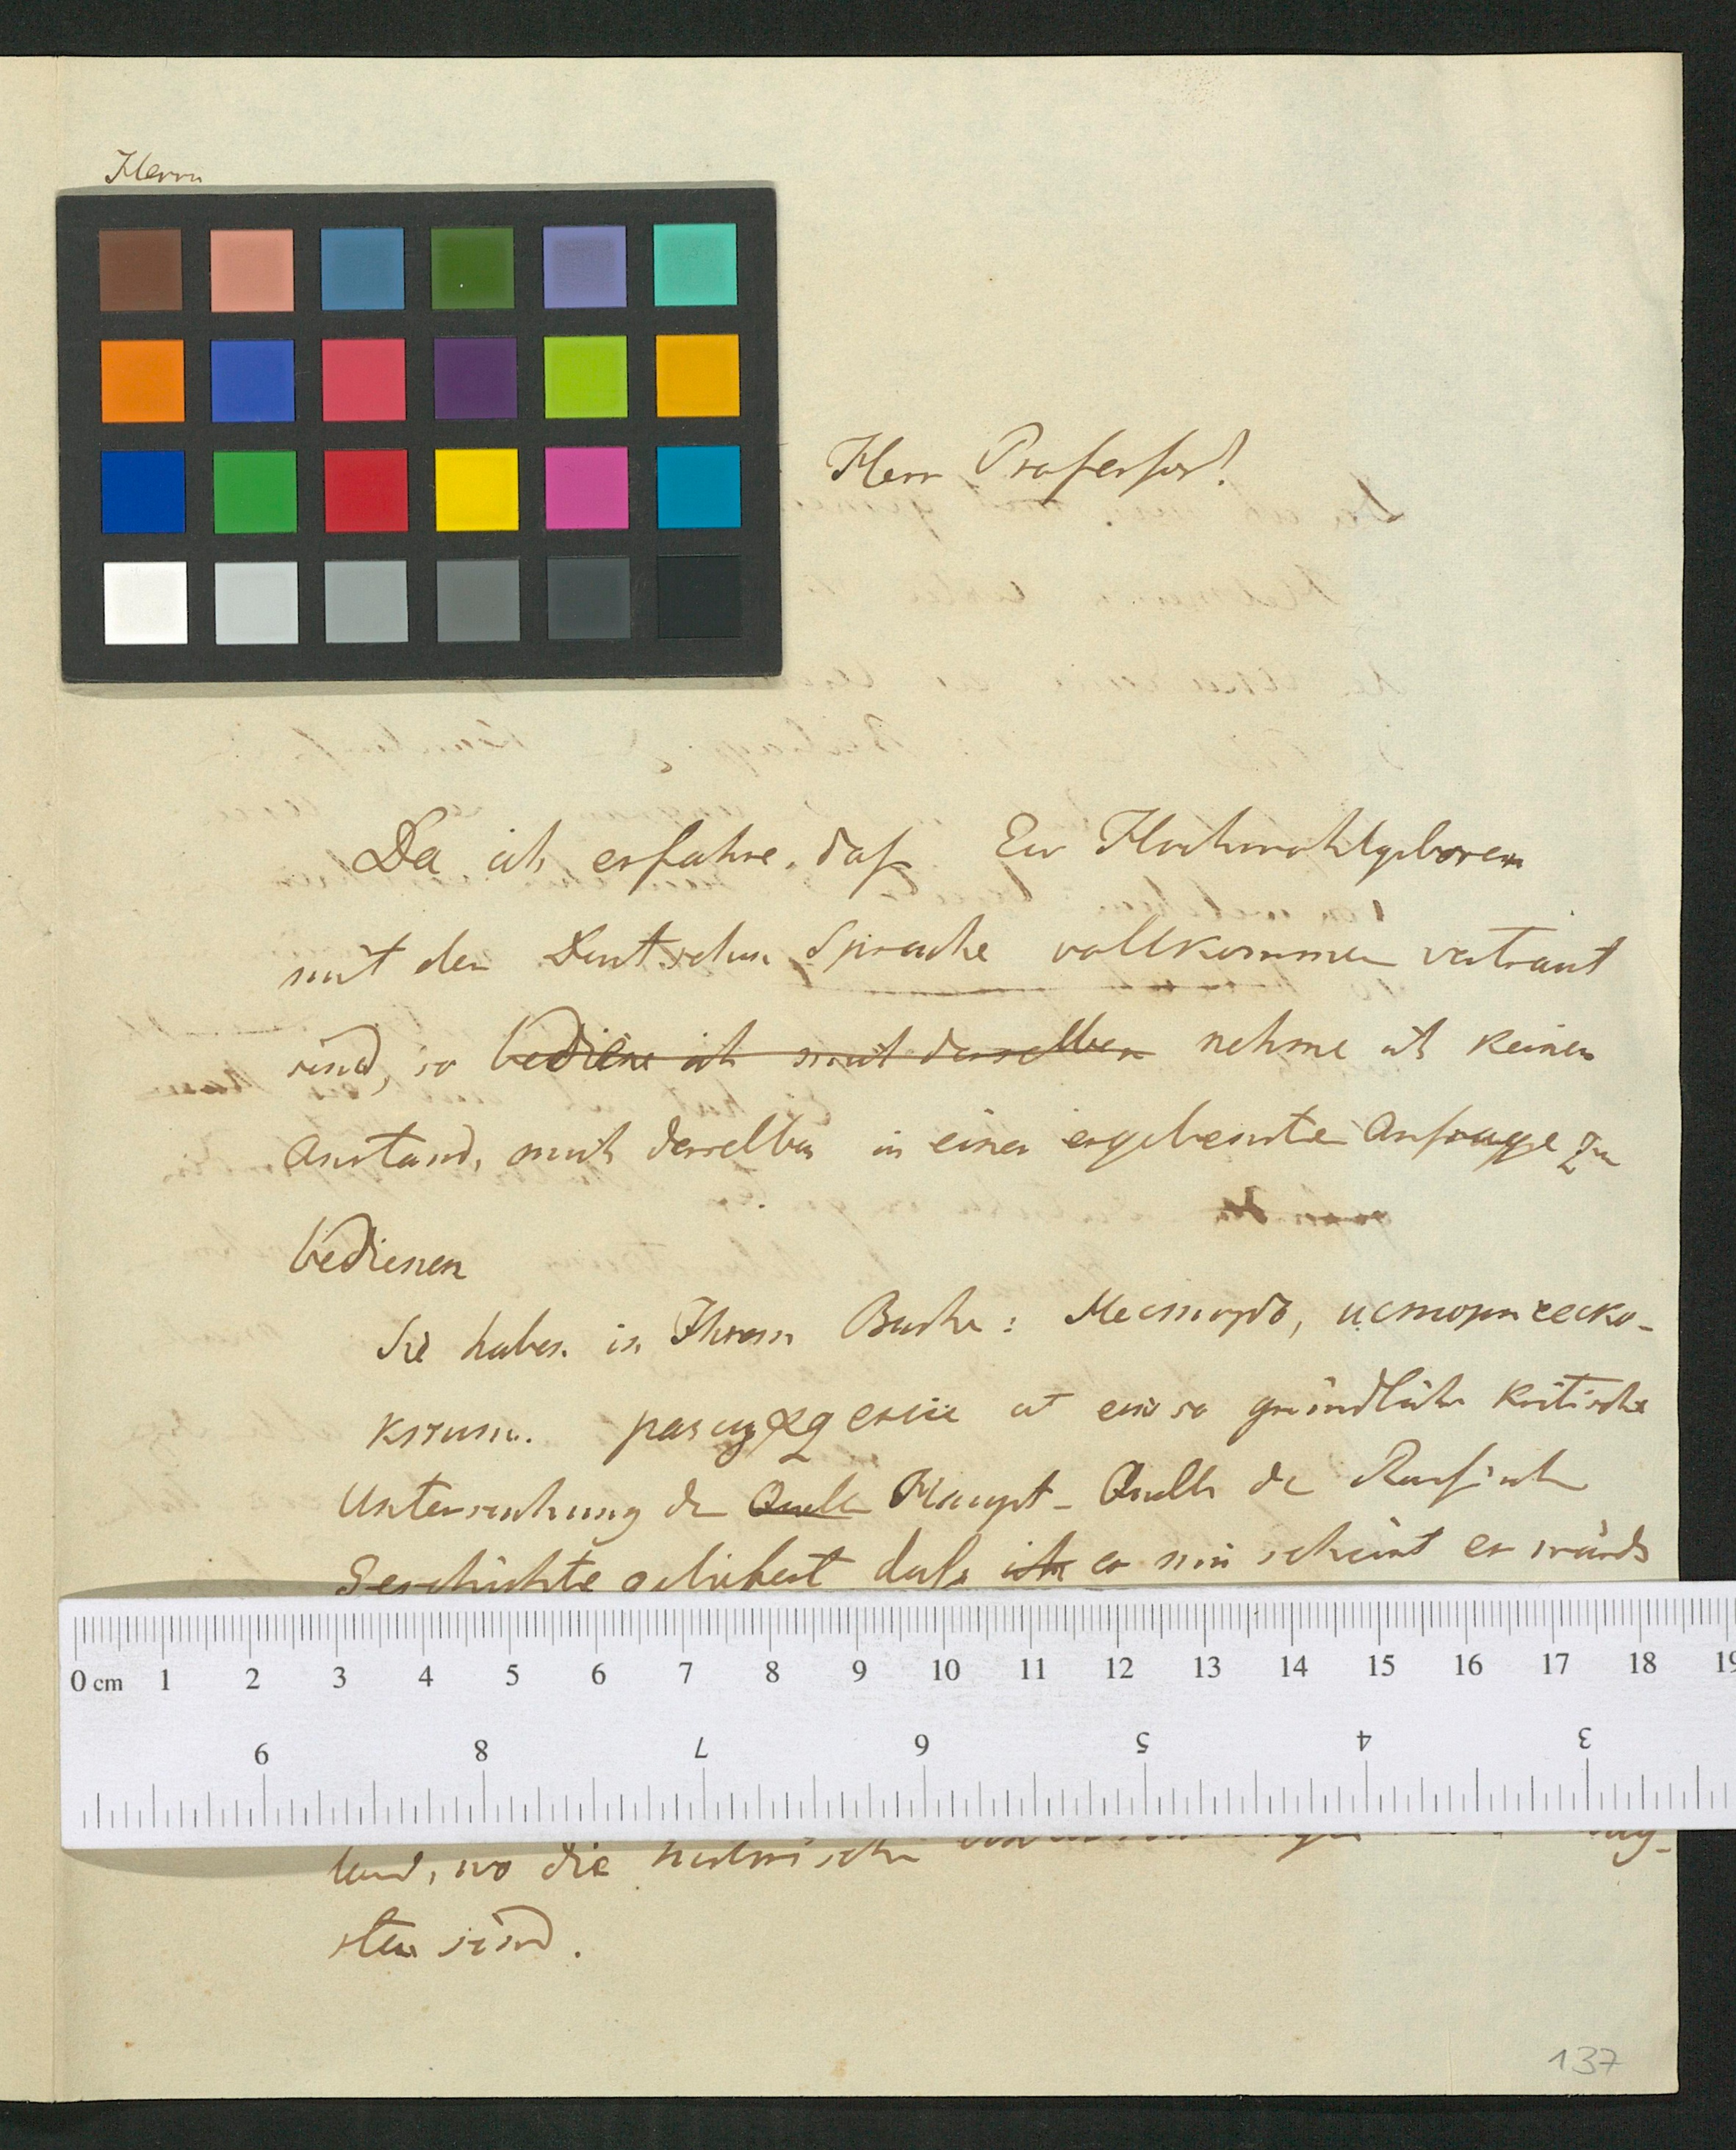 Herrn
Herr Professor!
Da ich erfahre, daß Ew Hochwohlgeboren
mit der Deutschen Sprache vollkommen vertraut
sind, so bediene ich mich derselben nehme ich keinen
Anstand, mich derselben in einer ergebensten Anfrage zu
bedienen
Sie haben in Ihrem Buche: Несторъ, историческо-
критич. eine so gründliche kritische
Untersuchung der Quelle Haupt-Quelle der Russischen
Geschichte geliefert daß ich es mir scheint es würde
0 cm 1 2 3 4 5 6 7 8 9 10 11 12 13 14 15 16 17 18 19
9 8 7 6 5 4 3
land, wo die
sten sind.
137